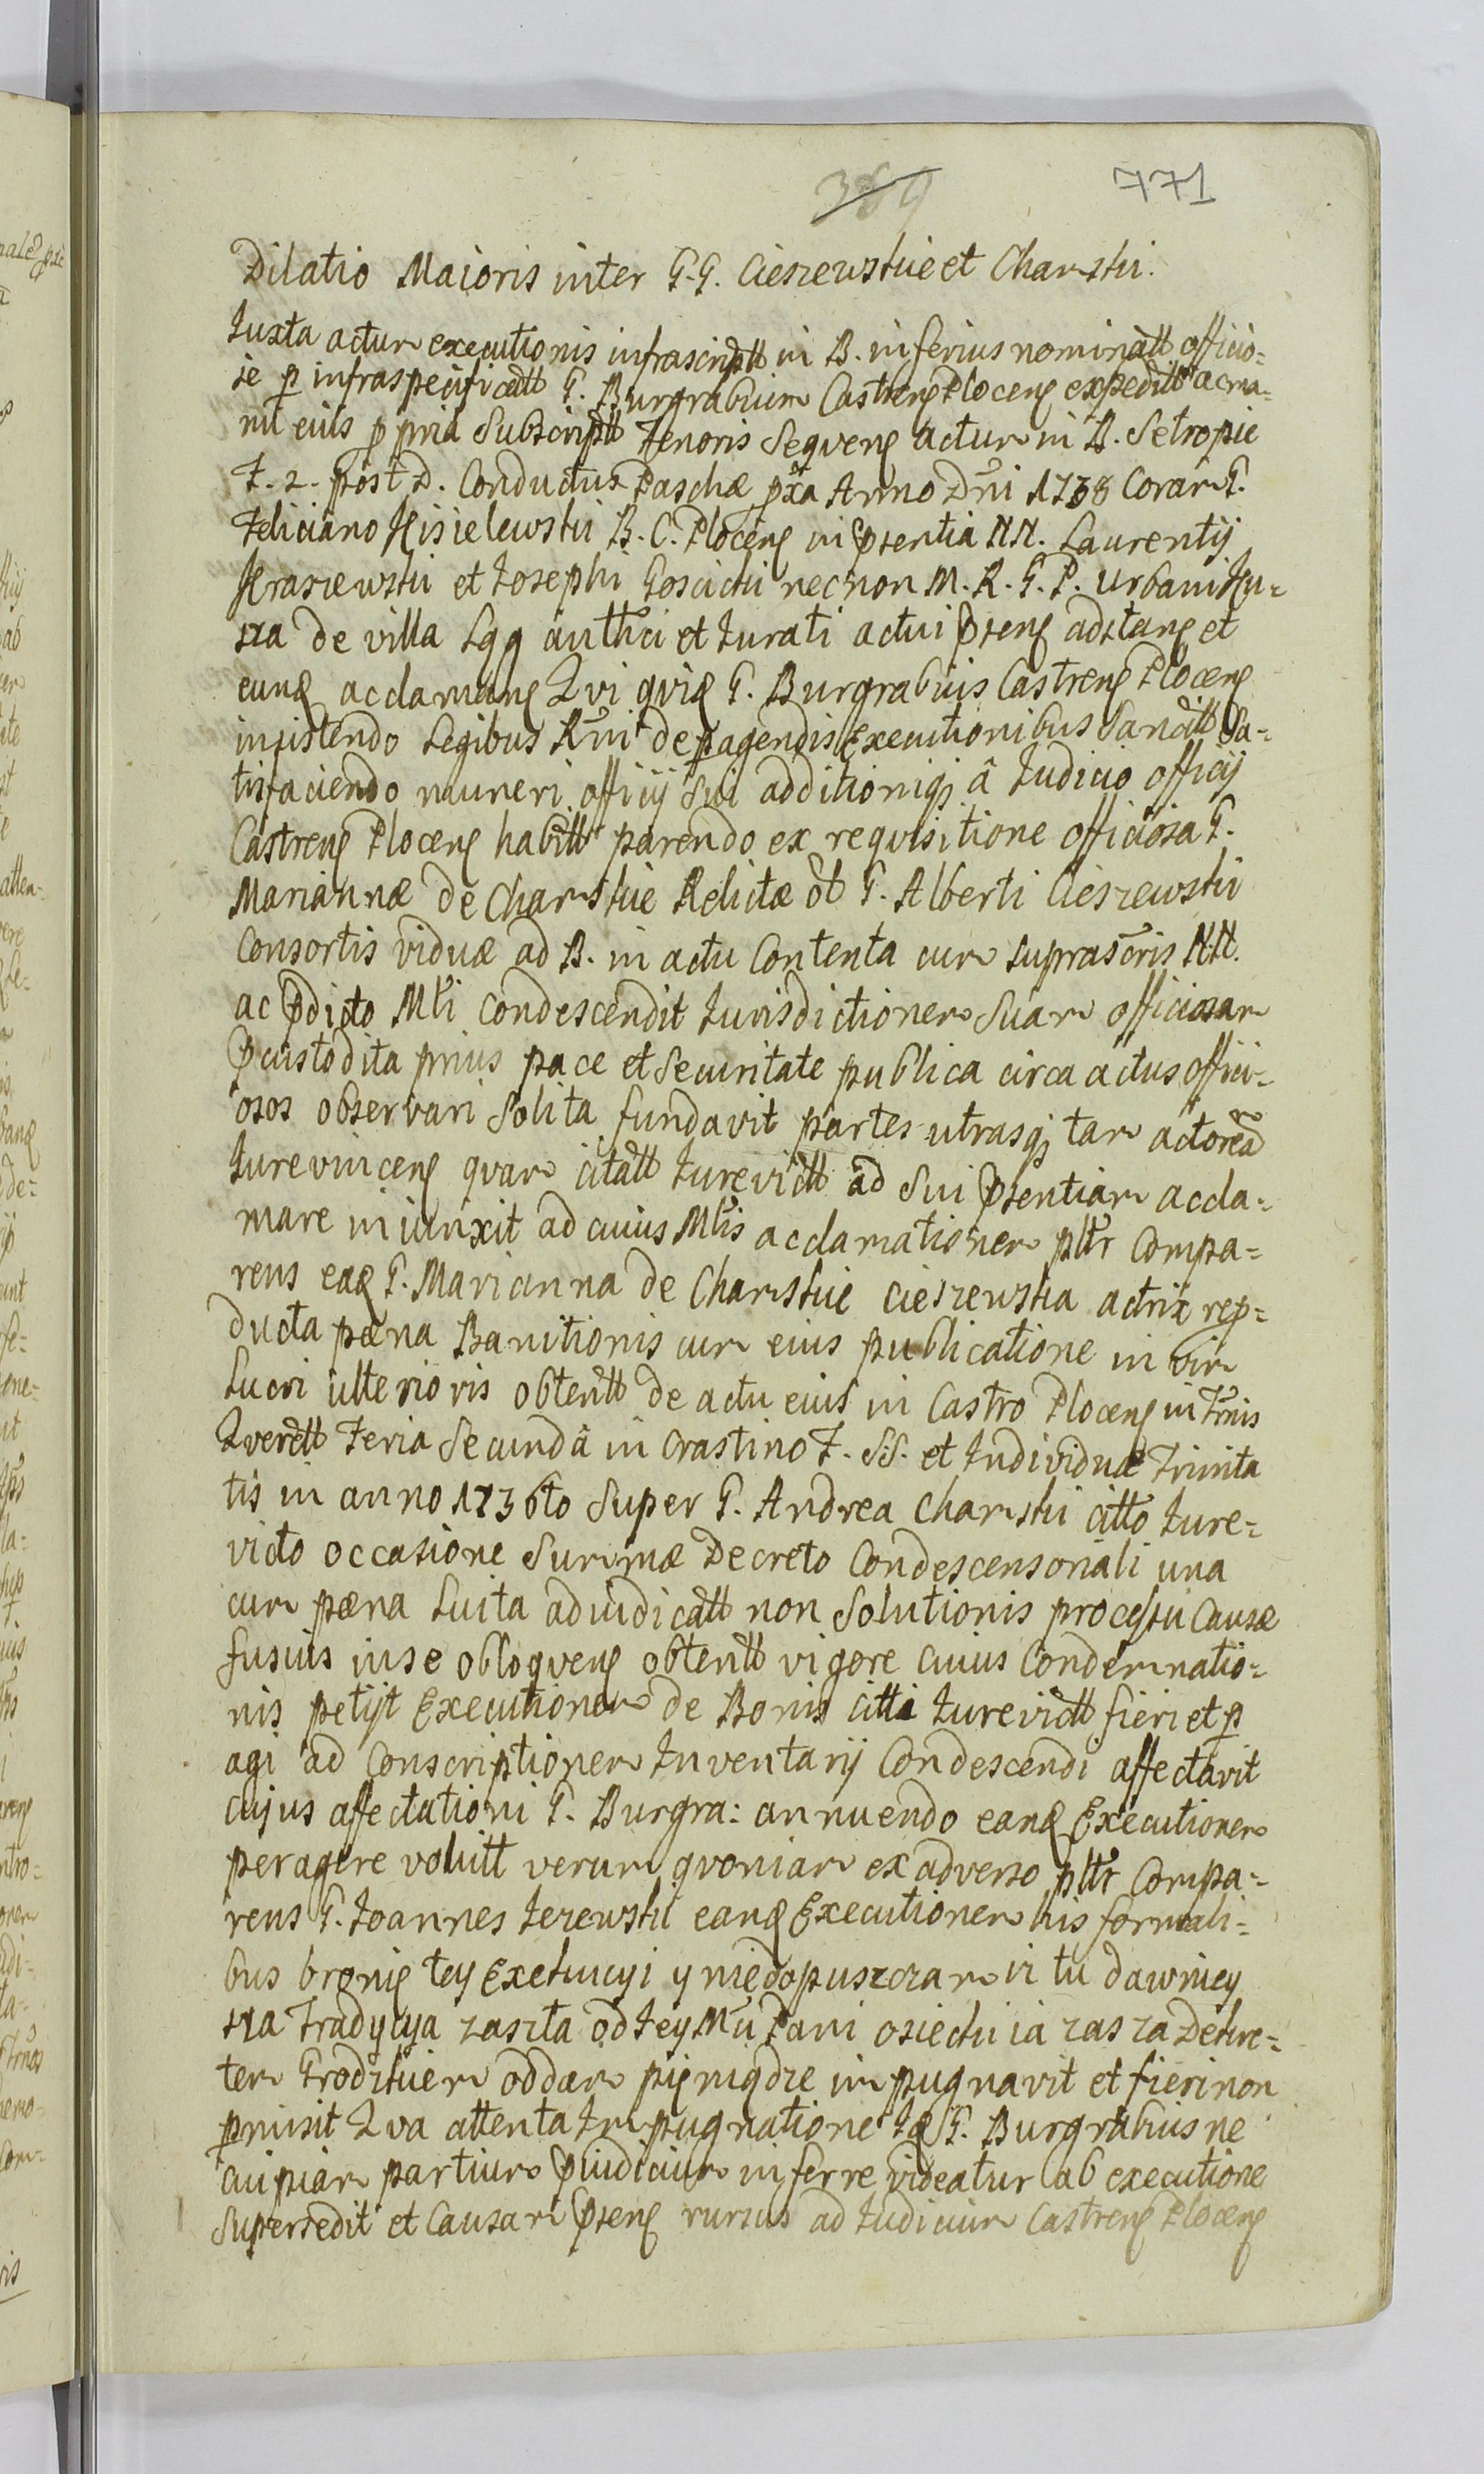 369 771
Dilatio Maioris inter G.G. Cieszewskie et Charski.
Juxta actum executionis infrascriptt in B. inferius nominatt officio=
se p infraspecificatt G. Burgrabium Castren Plocen expeditt ac ma=
nu eius ppria Subscriptt Tenoris Seqven actum in B. Setropie
F. 2. post D. Conductus Paschæ pxa Anno Dni 1738 Coram G.
Feliciano Kisielewski B. C. Plocen in Psentia NN. Laurentij
Kraszewski et Josephi Goscicki necnon M. R. G. P. Urbani Ku=
sza de villa Lgg autthci et Jurati actui Psen adstan et
eund acclaman Qui quid G. Burgrabius Castren Plocen
insistendo Legibus Rni de pagendis Executionibus Sancitt Sa=
tisfaciendo muneri officij Sui additioniqz â Judicio officij
Castren Plocen habitt parendo ex reqvisitione officiosa G.
Mariannæ de Charskie Relictæ ol G. Alberti Cieszewski
Consortis viduæ ad B. in actu Contenta cum suprascris NN.
ac Pdicto Mtli Condescendit Jurisdictionem Suam officiosam
Pcustodita prius pace et Securitate publica circa actus offici=
osos observari Solita fundavit partes utrasqz tam actoream
Jurevincen qvam citatt Jurevictt ad Sui Psentiam accla=
mare iniunxit ad cuius Mtlis acclamationem pltr Compa=
rens ead G. Marianna de Charskie Cieszewska actrix rep=
ducta pæna Banitionis cum eius publicatione in vim
Lucri ulterioris obtentt de actu eius in Castro Plocen in Trnis
Qverell Feria Secundâ in Crastino F. SS. et Individuæ Trinita
tis in anno 1736to Super G. Andrea Charski citto Jure=
victo occasione Summæ Decreto Condescensoriali una
cum pæna Luita adiudicatt non Solutionis processu Causæ
fusius in se obloqven obtentt vigore cuius Condemnatio=
nis petijt Executionem de Bonis citti Jurevictt fieri et p
agi ad Conscriptionem Inventarij Condescendi affectavit
cujus affectationi G. Burgra: annuendo eand Executionem
peragere voluitt verum qvoniam ex adverso pltr Compa=
rens G. Joannes Jezewski eand Executionem his formali=
bus bronię tey Exekucyi y niedopuszczam bi tu dawniey
sza Tradycya zaszła od Jey Mći Pani osiecki ia zas za Dekre=
tem Grodzkiem oddam pieniądze impugnavit et fieri non
pmisit Qva attenta Impugnatione Id G. Burgrabius ne
cuipiam partium Pjudicium inferre videatur ab executione
Supersedit et Causam Psen rursus ad Judicium Castren Plocen